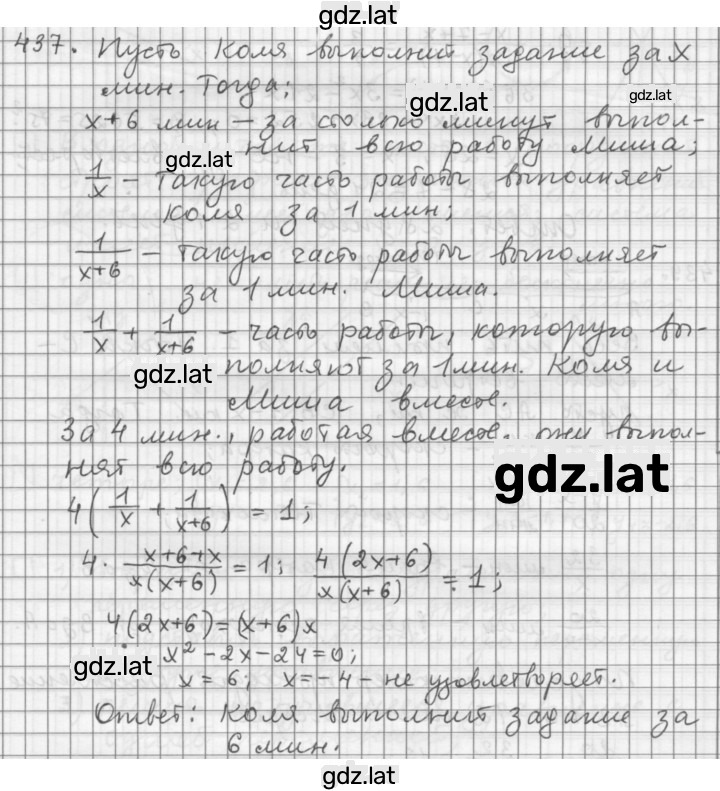 gdz.lat
437. Пусть Коля выполнит задание за x
мин. Тогда;
gdz.lat
gdz.lat
x+6 мин – за столько минут выпол-
нит всю работу Миша;
gdz.lat
1/x – такую часть работы выполняет
Коля за 1 мин;
1/(x+6) – такую часть работы выполняет
за 1 мин. Миша.
1/x + 1/(x+6) – часть работы, которую вы-
полняют за 1 мин. Коля и
gdz.lat
Миша вместе.
За 4 мин., работая вместе, они выпол-
нят всю работу.
gdz.lat
4(1/x + 1/(x+6)) = 1;
4 · (x+6+x)/(x(x+6)) = 1; 4(2x+6)/(x(x+6)) = 1;
4(2x+6)=(x+6)x
gdz.lat
x² – 2x – 24 = 0;
x = 6; x = – 4 – не удовлетворяет.
Ответ: Коля выполнит задание за
6 мин.
gdz.lat